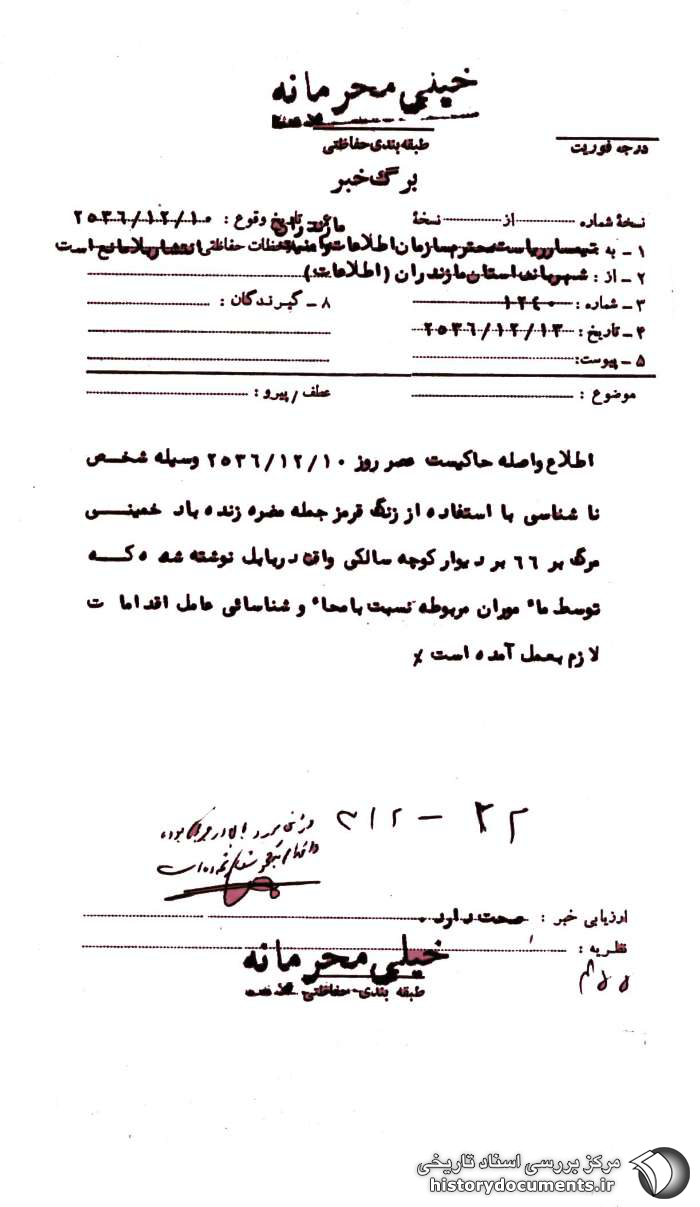 خیلی محرمانه
طبقه بندی حفاظتی
درجه فوریت
برگ خبر
نسخهٔ شماره از نسخهٔ
تاریخ وقوع : ۲۵۳٦/۱۲/۱۰
۱ - به تیمسار ریاست محترم سازمان اطلاعات و امنیت مازندران
ملاحظات حفاظتی انتشار بلامانع است
۲ - از : شهربانی استان مازندران (اطلاعات)
۳ - شماره : ۱۲٤۰
۸ - گیرندگان :
۴ - تاریخ : ۲۵۳٦/۱۲/۱۳
۵ - پیوست:
موضوع :
عطف/پیرو :
اطلاع واصله حاکیست عصر روز ۲۵۳٦/۱۲/۱۰ وسیله شخص
نا شناسی با استفاده از رنگ قرمز جمله مضره زنده باد خمینی
مرگ بر ٦٦ بر دیوار کوچه سالکی واقع در بابل نوشته شده که
توسط مأموران مربوطه نسبت بامحاء و شناسائی عامل اقدامات
لازم بعمل آمده است ×
۳۱۲ - ۲۲
ارزیابی خبر : صحت دارد .
نظریه :
خیلی محرمانه
طبقه بندی حفاظتی
مرکز بررسی اسناد تاریخی
historydocuments.ir